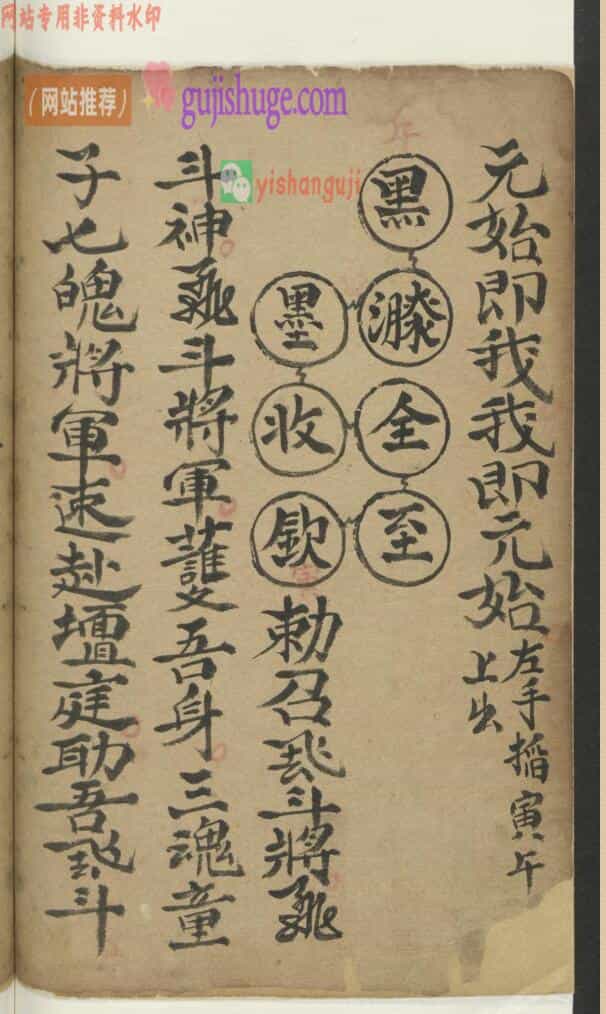 网站专用非资料水印
(网站推荐)
gujishuge.com
yishanguji
元始即我我即元始左手掐寅午
上出
午
黑
全
至
墨
收
欽
寅
勅召飛斗將飛
斗神飛斗將軍護吾身三魂童
子七魄將軍速赴壇庭助吾飛斗